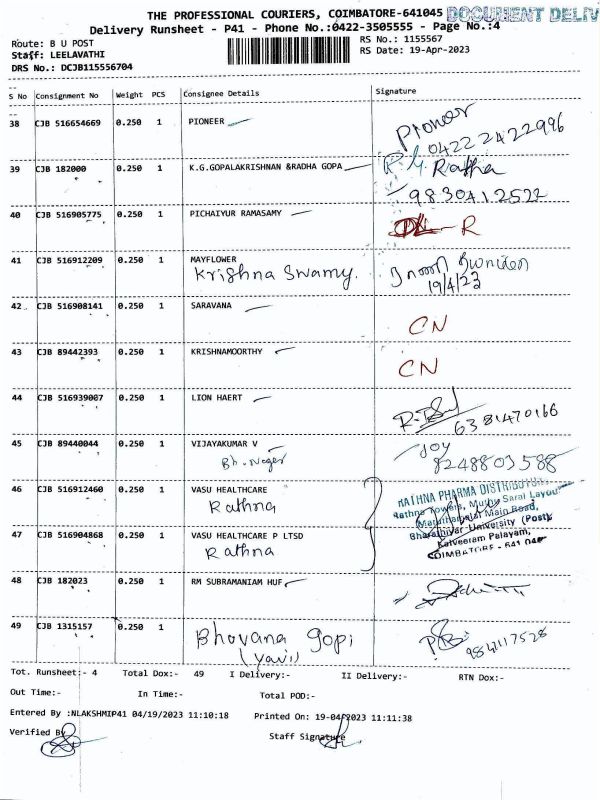 THE PROFESSIONAL COURIERS, COIMBATORE-641045 DOCUMENT DELIV
Delivery Runsheet - P41 - Phone No.:0422-3505555 - Page No.:4
Route: B U POST RS No.: 1155567
Staff: LEELAVATHI RS Date: 19-Apr-2023
DRS No.: DCJB115556704
S No Consignment No Weight PCS Consignee Details Signature
38 CJB 516654669 0.250 1 PIONEER Pioneer
04222422996
39 CJB 182000 0.250 1 K.G.GOPALAKRISHNAN &RADHA GOPA R.G Ratha
9830412522
40 CJB 516905775 0.250 1 PICHAIYUR RAMASAMY R
41 CJB 516912209 0.250 1 MAYFLOWER
Krishna Swamy.
19/4/23
42 CJB 516908141 0.250 1 SARAVANA CN
43 CJB 89442393 0.250 1 KRISHNAMOORTHY CN
44 CJB 516939007 0.250 1 LION HAERT
6381470166
45 CJB 89440044 0.250 1 VIJAYAKUMAR V Joy
Bh. Nager 8248803588
46 CJB 516912460 0.250 1 VASU HEALTHCARE
Rathna
RATHNA PHARMA DISTRIBUTOR
Rathna Towers, Muthu Saral Layou
Maruthamalai Main Road,
Bharathiyar University (Post)
Kalveeram Palayam,
COIMBATORE - 641 046
47 CJB 516904868 0.250 1 VASU HEALTHCARE P LTSD
Rathna
48 CJB 182023 0.250 1 RM SUBRAMANIAM HUF
49 CJB 1315157 0.250 1 Bhovana gopi
(yavi) 9841117528
Tot. Runsheet:- 4 Total Dox:- 49 I Delivery:- II Delivery:- RTN Dox:-
Out Time:- In Time:- Total POD:-
Entered By :NLAKSHMIP41 04/19/2023 11:10:18 Printed On: 19-04-2023 11:11:38
Verified By Staff Signature